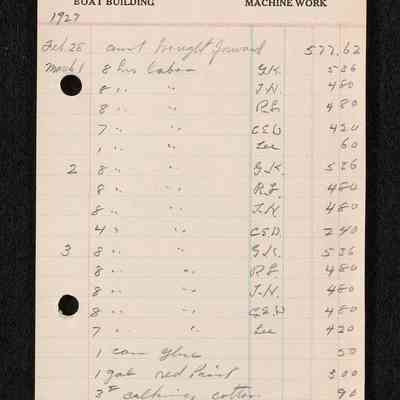 BOAT BUILDING MACHINE WORK
1927
Feb. 25 amt brought forward 577.62
March 1 8 hrs labor G.K. 5 36
8 " " J.H. 4 80
8 " " R.L. 4 80
7 " " C.E.D. 4 20
1 " " Lee 60
2 8 " " G.K. 5 36
8 " " R.L. 4 80
8 " " J.H. 4 80
4 " " C.E.D. 2 40
3 8 " " G.K. 5 36
8 " " R.L. 4 80
8 " " J.H. 4 80
8 " " C.E.D. 4 80
7 " " Lee 4 20
1 can glue 50
1 gal red Paint 3 00
3# calking cotton 90